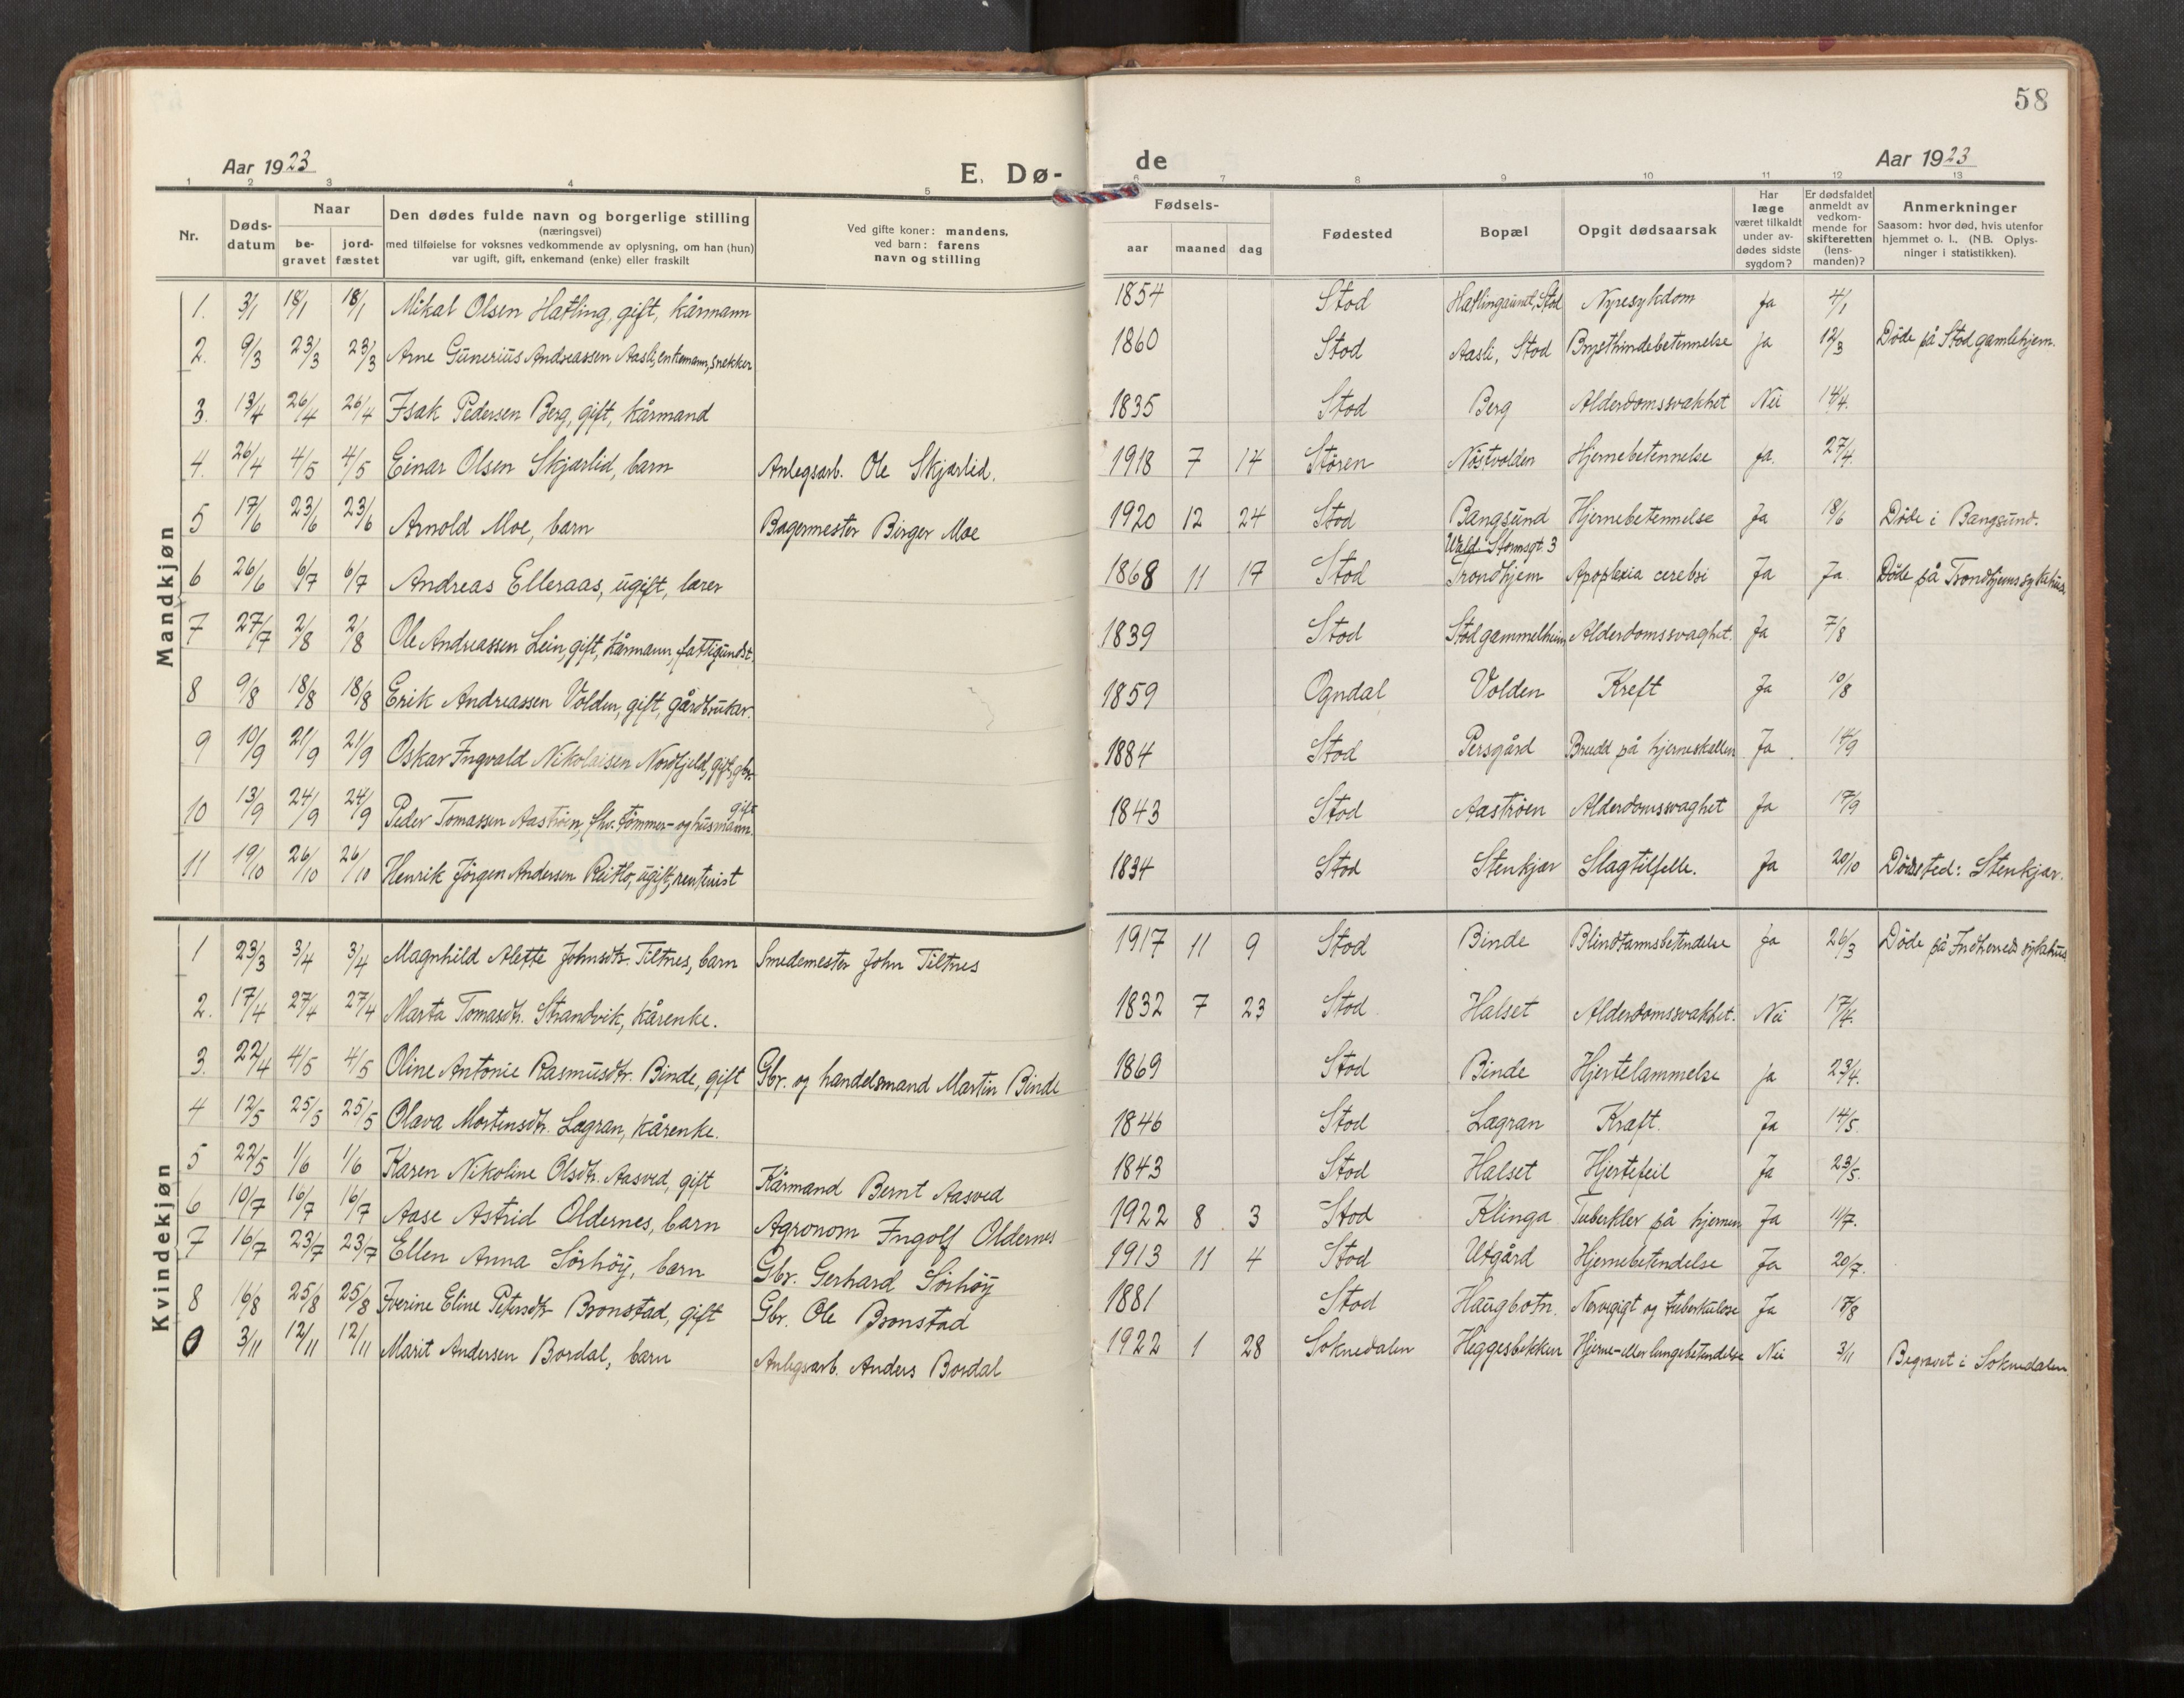 58
Aar 1923
E. Dø-
de
Aar 1923
1 2 3 4 5 6 7 8 9 10 11 12 13
Nr.
Døds-
datum
Naar
be-
gravet
jord-
fæstet
Den dødes fulde navn og borgerlige stilling
(næringsvei)
med tilføielse for voksnes vedkommende av oplysning, om han (hun)
var ugift, gift, enkemand (enke) eller fraskilt
Ved gifte koner: mandens,
ved barn: farens
navn og stilling
Fødsels-
aar maaned dag
Fødested
Bopæl
Opgit dødsaarsak
Har
læge
været tilkaldt
under av-
dødes sidste
sygdom?
Er dødsfaldet
anmeldt av
vedkom-
mende for
skifteretten
(lens-
manden)?
Anmerkninger
Saasom: hvor død, hvis utenfor
hjemmet o. l., (NB. Oplys-
ninger i statistikken).
Mandkjøn
1. 3/1 18/1 18/1 Mikal Olsen Hatling, gift, kårmann 1854 Stod Hatlingaunet, Stod Nyresykdom Ja 4/1
2. 9/3 23/3 23/3 Arne Gunerius Andreassen Aasli, enkemann, snekker 1860 Stod Aasli, Stod Brysthindebetennelse Ja 12/3 Døde på Stod gamlehjem.
3. 13/4 26/4 26/4 Isak Pedersen Berg, gift, kårmand 1835 Stod Berg Alderdomssvakhet Nei 14/4.
4. 26/4 4/5 4/5 Einar Olsen Skjærlid, barn Anlegsarb. Ole Skjærlid. 1918 7 14 Støren Nöstvolden Hjernebetennelse Ja. 27/4.
5 17/6 23/6 23/6 Arnold Moe, barn Bagermester Birger Moe 1920 12 24 Stod Bangsund Hjernebetennelse Ja 18/6 Døde i Bangsund.
6 26/6 6/7 6/7 Andreas Elleraas, ugift, lærer 1868 11 17 Stod Wald. Stormsgt. 3 Trondhjem Apoplexia cerebri Ja Ja Døde på Trondhjems sykehus
7 27/7 2/8 2/8 Ole Andreassen Lein, gift, kårmann, fattigundst. 1839 Stod Stod gammelheim Alderdomssvaghet. Ja 7/8
8 9/8 18/8 18/8 Erik Andreassen Volden, gift, gårdbruker. 1859 Ogndal Volden Kreft Ja 10/8
9 10/9 21/9 21/9 Oskar Ingvald Nikolaisen Nordfjeld, gift, gbr. 1884 Stod Persgård Brudd på hjerneskallen Ja 14/9
10 13/9 24/9 24/9 Peder Tomassen Aastrøen, fhv. tømmer- og husmann. gift 1843 Stod Aastrøen Alderdomssvaghet Ja 17/9
11 19/10 26/10 26/10 Henrik Jörgen Andersen Reitlo, ugift, rentenist 1834 Stod Stenkjær Slagtilfelle. Ja 20/10 Dødssted: Stenkjær.
Kvindekjøn
1 23/3 3/4 3/4 Magnhild Alette Johnsdtr. Tiltnes, barn Smedemester John Tiltnes 1917 11 9 Stod Binde Blindtarmsbetendelse Ja 26/3 Døde på Indherreds sykehus
2. 17/4 27/4 27/4 Marta Tomasdtr. Strandvik, kårenke. 1832 7 23 Stod Halset Alderdomssvakhet. Nei 17/4.
3. 22/4 4/5 4/5 Oline Antonie Rasmusdtr. Binde, gift Gbr. og handelsmand Martin Binde 1869 Stod Binde Hjertelammelse Ja 23/4.
4 12/5 25/5 25/5 Olava Mortensdtr. Lagran, kårenke. 1846 Stod Lagran Kræft. Ja 14/5.
5 22/5 1/6 1/6 Karen Nikoline Olsdtr. Aasved, gift Kårmand Bernt Aasved 1843 Stod Halset Hjertefeil Ja 23/5.
6 10/7 16/7 16/7 Aase Astrid Oldernes, barn Agronom Ingolf Oldernes 1922 8 3 Stod Klinga Tuberkler på hjernen Ja 11/7.
7 16/7 23/7 23/7 Ellen Anna Sörhöy, barn Gbr. Gerhard Sörhöy 1913 11 4 Stod Utgård Hjernebetendelse Ja 20/7.
8 16/8 25/8 25/8 Iverine Eline Petersdtr. Bronstad, gift Gbr. Ole Bronstad 1881 Stod Haugbotn. Nervegigt og tuberkulose Ja 17/8
9 3/11 12/11 12/11 Marit Andersen Bordal, barn Anlegsarb. Anders Bordal 1922 1 28 Soknedalen Heggesbekken Hjerne- eller lungebetendelse Nei 3/11 Begravet i Soknedalen